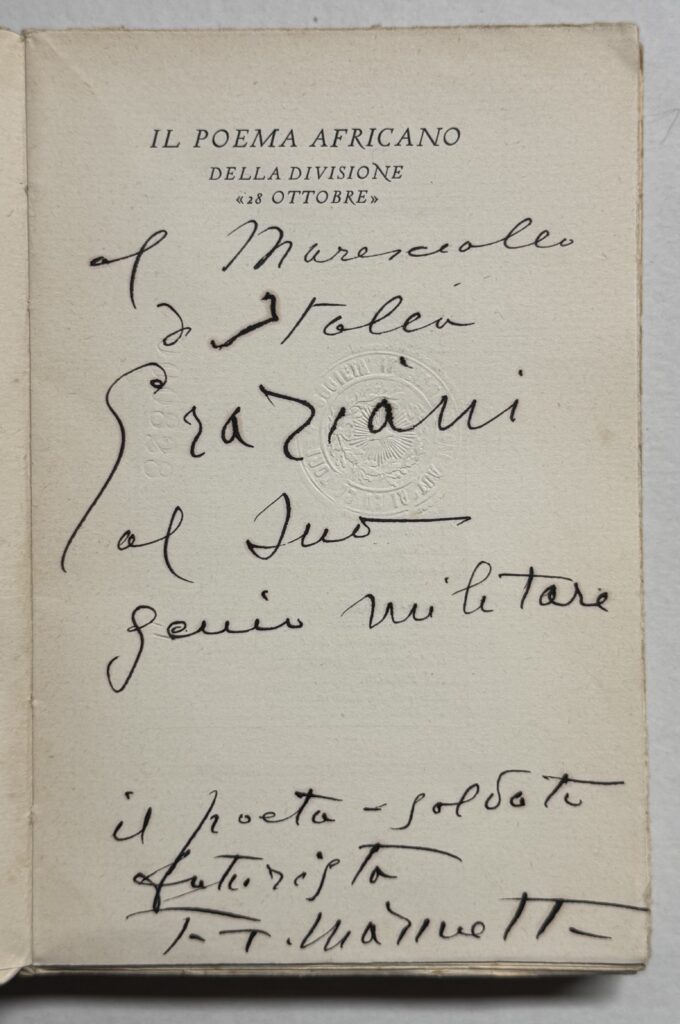 IL POEMA AFRICANO
DELLA DIVISIONE
«28 OTTOBRE»
al Maresciallo
d'Italia
Graziani
al Suo
genio militare
il poeta-soldato
futurista
F. T. Marinetti